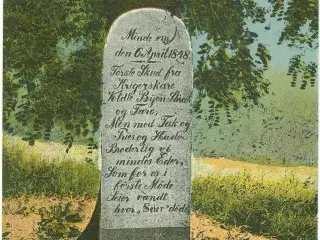 Minde om
den 6 April 1848.
Første Skud fra
Krigerskare
Voldte Byen Skræk
og Fare,
Men med Tak og
Priis og Hæder
Broderlig vi
mindes Eder,
Som for os i
første Møde
Seier vandt
hvor "Seier" døde